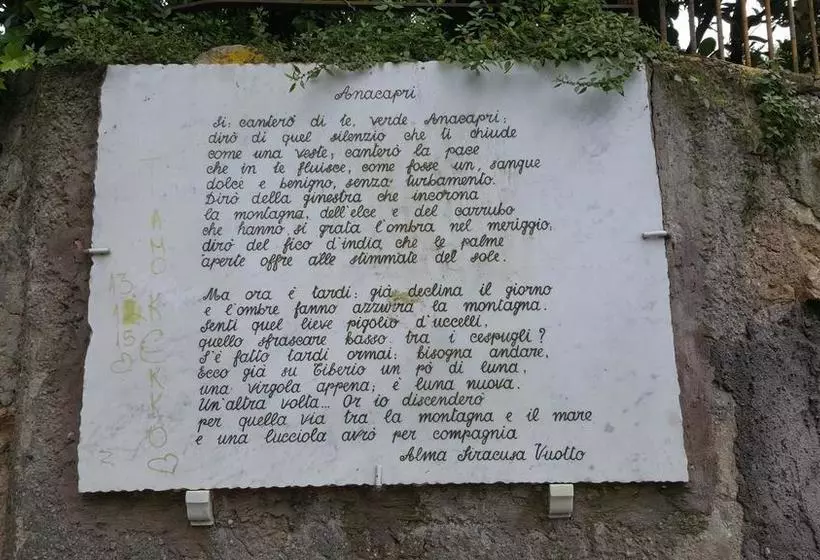 Anacapri
Sì: canterò di te, verde Anacapri;
dirò di quel silenzio che ti chiude
come una veste; canterò la pace
che in te fluisce, come fosse un sangue
dolce e benigno, senza turbamento.
Dirò della ginestra che incorona
la montagna, dell'elce e del carrubo
che hanno sì grata l'ombra nel meriggio;
dirò del fico d'india che le palme
aperte offre alle stimmate del sole.
Ma ora è tardi: già declina il giorno
e l'ombre fanno azzurra la montagna.
Senti quel lieve pigolìo d'uccelli,
quello sfrascare basso tra i cespugli?
S'è fatto tardi ormai: bisogna andare.
Ecco già su Tiberio un pò di luna,
una virgola appena; è luna nuova.
Un'altra volta... Or io discenderò
per quella via tra la montagna e il mare
e una lucciola avrò per compagnia
Alma Siracusa Vuotto
AMO
13
15